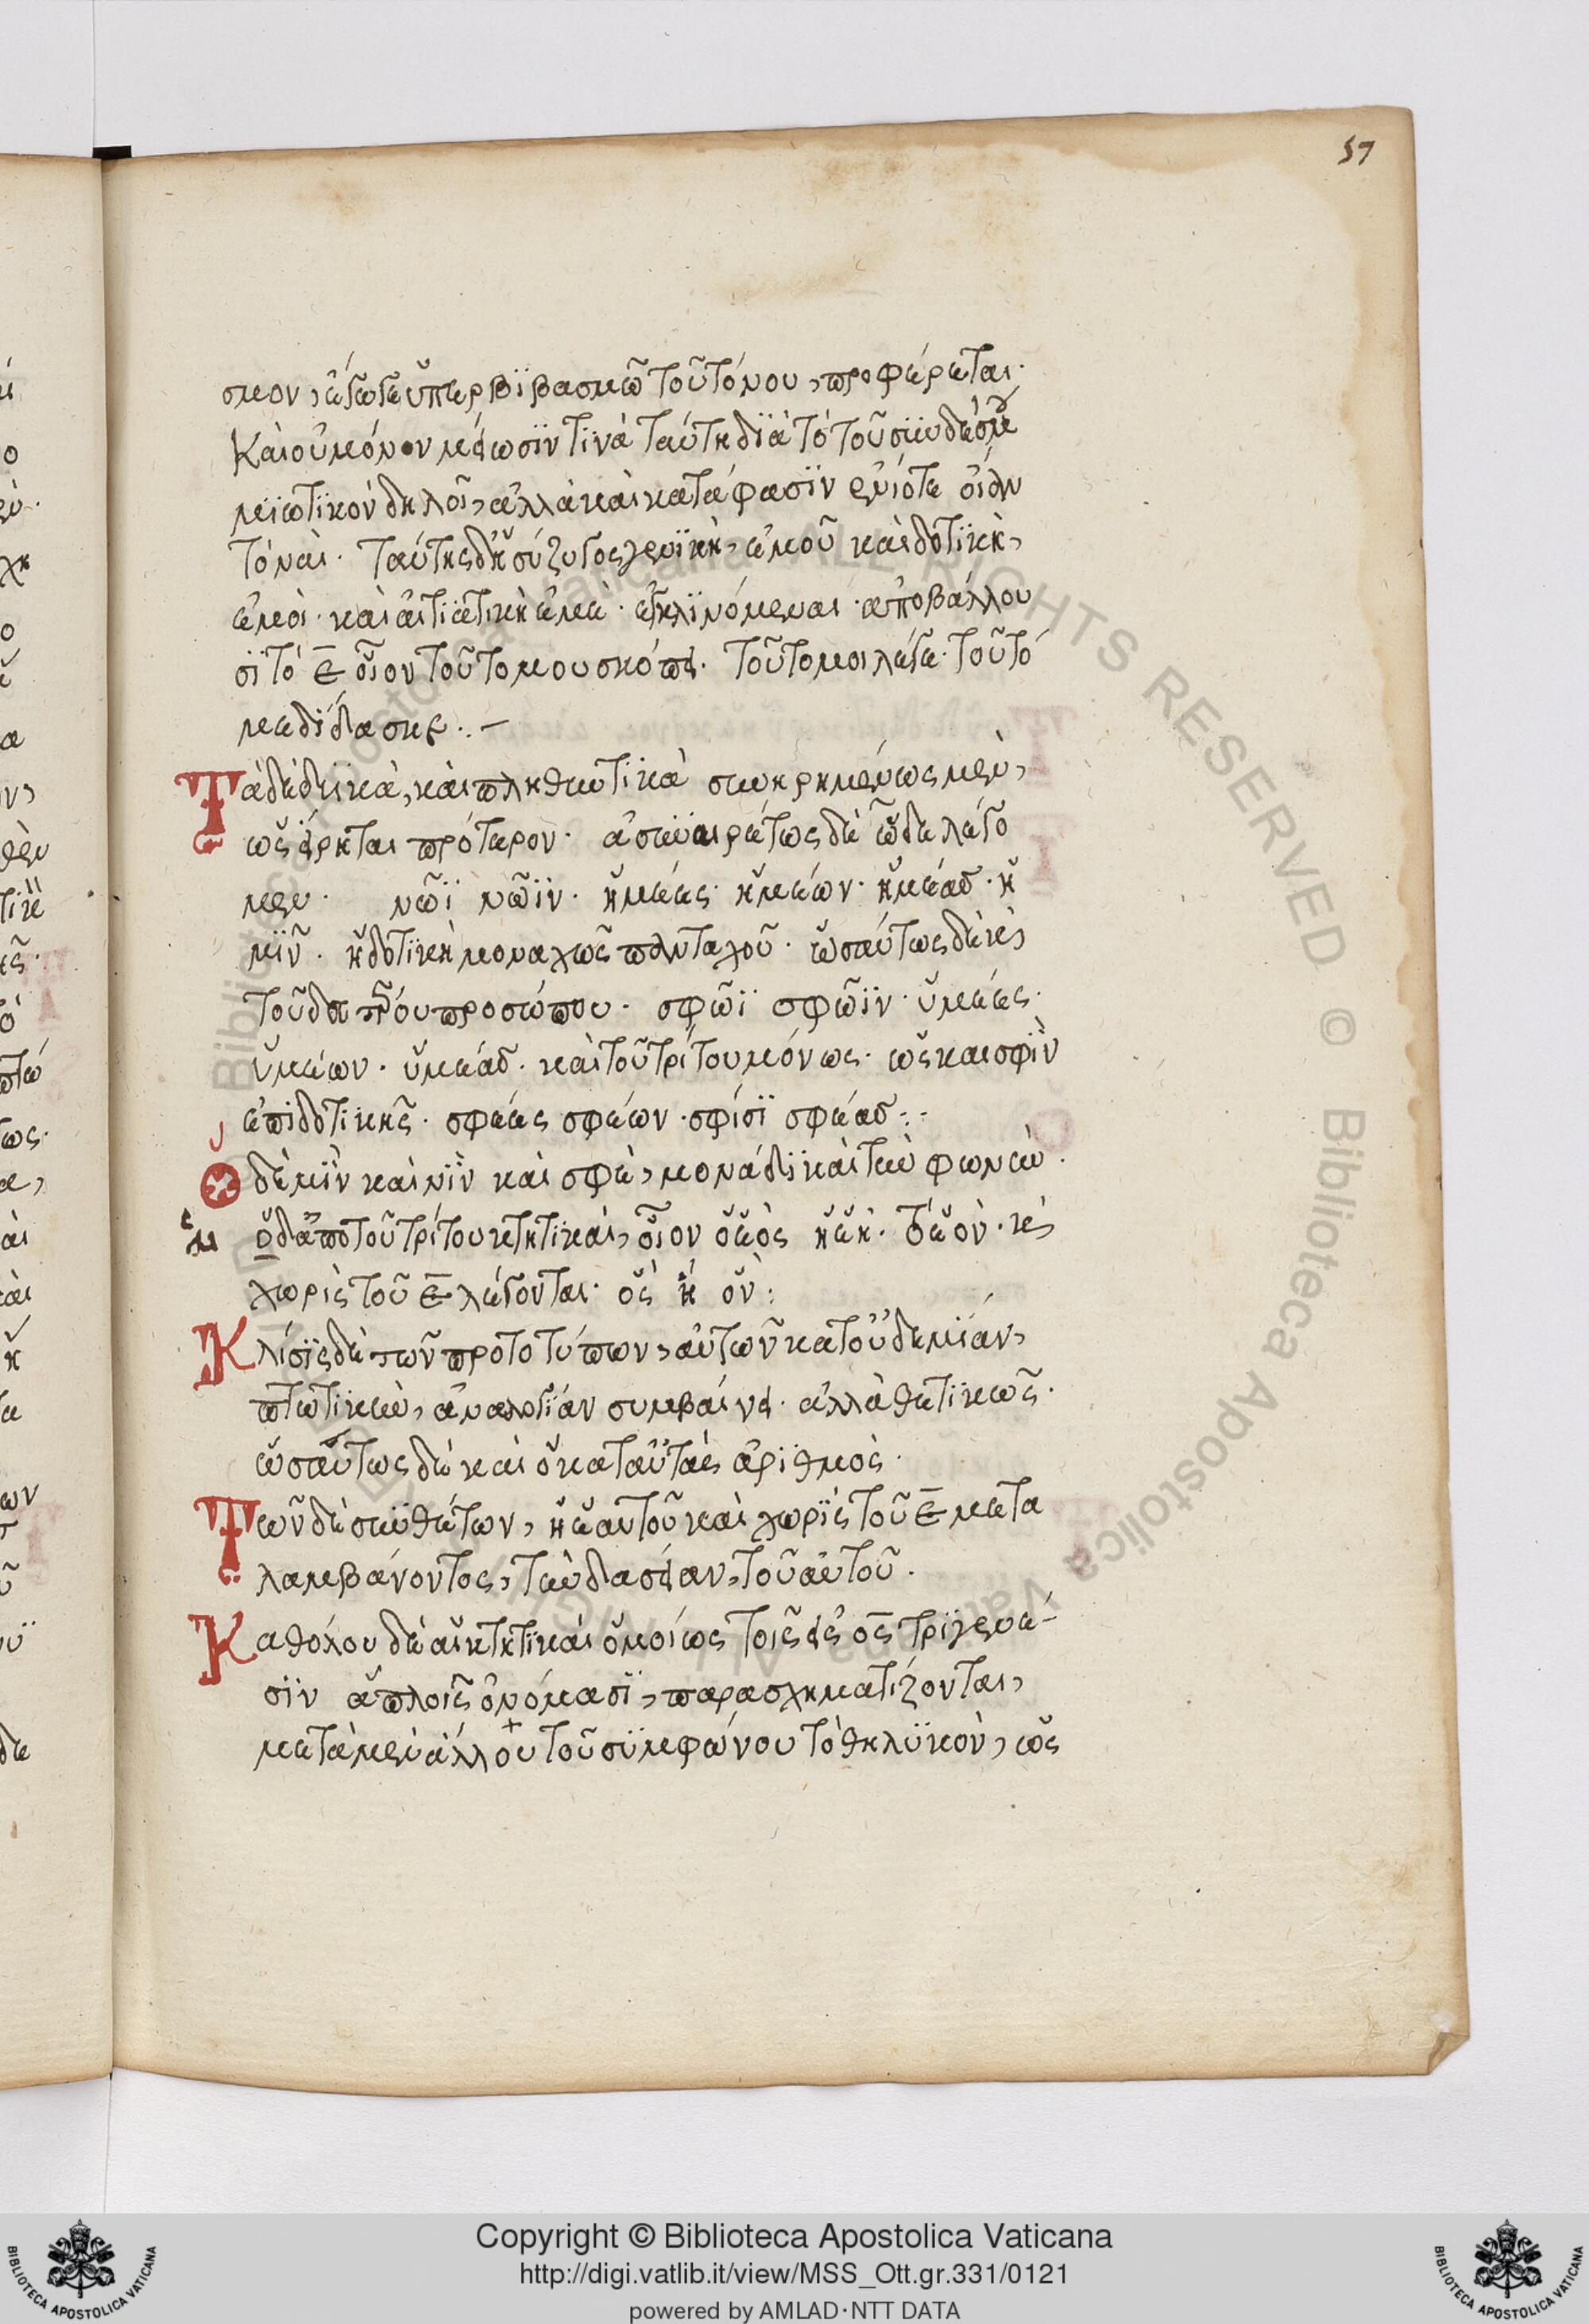 57
σμον, ἔγωγε ὑπερβιβασμῶ τοῦ τόνου, προφέρεται·
Καὶ οὐ μόνον μείωσίν τινα ταύτη διὰ τὸ τοῦ συνδέσμου
μειωτικὸν δηλοῖ, ἀλλὰ καὶ κατάφασιν ἐνίοτε οἷον
τὸ ναί· ταύτης δὴ σύζυγος γενικὴ, ἐμοῦ καὶ δοτικὴ,
ἐμοὶ· καὶ αἰτιατικὴ ἐμὲ· ἐγκλινόμεναι ἀποβάλλου
σι τὸ ε̄ οἷον τοῦτό μου σκόπει· τοῦτό μοι λέγε· τοῦτό
με δίδασκε·. –
Τὰ δὲ δυϊκὰ, καὶ πληθυντικὰ συνηρημένως μὲν,
ὡς εἴρηται πρότερον· ἀσυναιρέτως δὲ ὧδε λέγο
μεν· νῶϊ νῶϊν· ἡμέες· ἡμέων· ἡμέας· ἡ
μῖν· ἡ δοτικὴ μοναχῶς πανταχοῦ· ὡσαύτως δὲ κὶ
τοῦ δευτέρου προσώπου· σφῶϊ σφῶϊν· ὑμέες·
ὑμέων· ὑμέας· καὶ τοῦ τρίτου μόνως· ὡς καὶ σφὶν
ἐπὶ δοτικῆς· σφέες σφέων· σφίσι σφέας:·
Ὁ δὲ μὶν καὶ νὶν καὶ σφὲ, μονάδικαὶ τὴν φωνὴν·
αἱ δ' ἀπὸ τοῦ τρίτου κτητικαὶ, οἷον ὁ ἑὸς ἡ ἑὴ· τὸ ἑὸν· κὶ
χωρὶς τοῦ ε̄ λέγονται· ὃς ἣ ὃν:
Κλίσις δὲ τῶν πρωτοτύπων, αὐτῶν κατ' οὐδεμίαν,
πτωτικὴν, ἀναλογίαν συμβαίνει· ἀλλὰ θετικῶς·
ὡσαύτως δὲ καὶ ὁ κατ' αὐτὰς ἀριθμὸς·
Τῶν δὲ συνθέτων, ἡ ἑαυτοῦ καὶ χωρὶς τοῦ ε̄ μετα
λαμβάνοντος, τὴν δασεῖαν, τοῦ αὑτοῦ·
Καθόλου δὲ αἱ κτητικαὶ ὁμοίως τοῖς εἰς ος τριγενέ-
σιν ἁπλοῖς ὀνόμασι, παρασχηματίζονται,
μετὰ μὲν ἄλλου τοῦ συμφώνου τὸ θηλυκὸν, ὡς
Copyright © Biblioteca Apostolica Vaticana
http://digi.vatlib.it/view/MSS_Ott.gr.331/0121
powered by AMLAD·NTT DATA